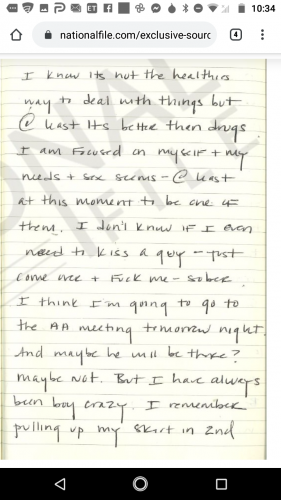 10:34
nationalfile.com/exclusive-sourc
4
I know its not the healthies
way to deal with things but
@ least its better then drugs.
I am focused on myself + my
needs + sex seems - @ least
at this moment to be one of
them. I don't know if I even
need to kiss a guy - just
come over + Fuck me - sober.
I think I'm going to go to
the AA meeting tomorrow night.
And maybe he will be there?
maybe not. But I have always
been boy crazy. I remember
pulling up my skirt in 2nd